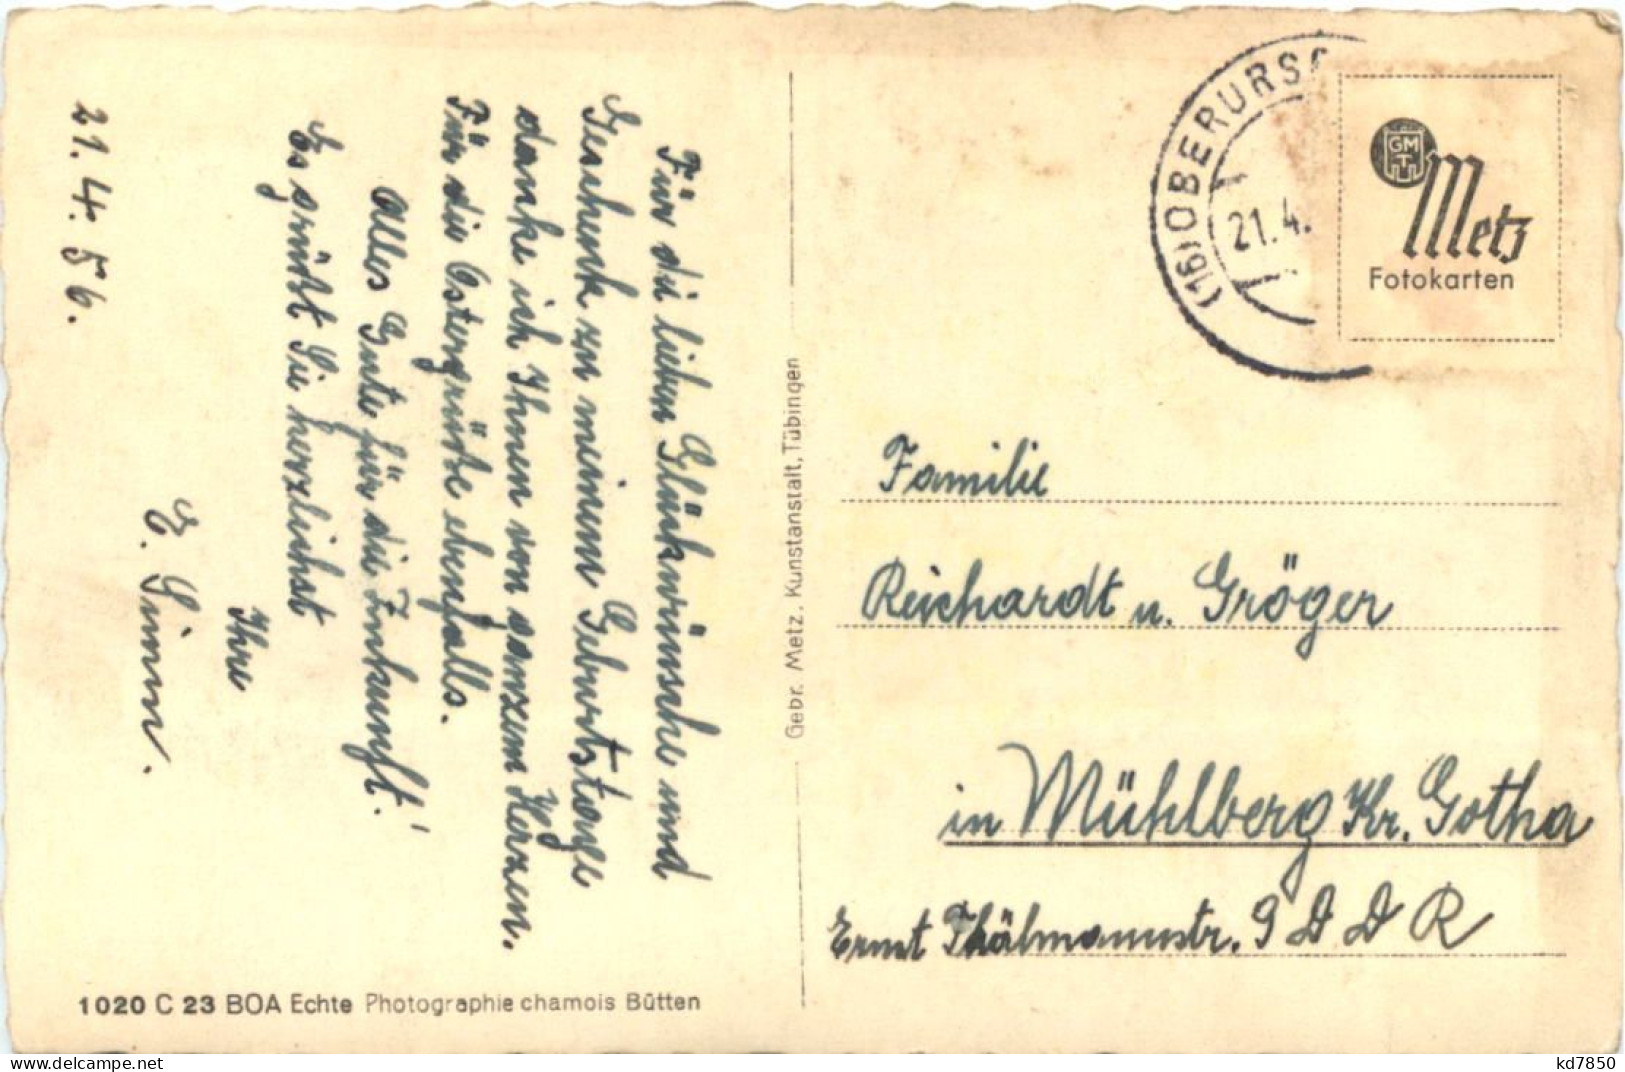 Für die lieben Glückwünsche und
Geschenk zu meinem Geburtstage
danke ich Ihnen von ganzem Herzen.
Für die Ostergrüße ebenfalls.
Alles Gute für die Zukunft!
Es grüßt Sie herzlichst
Ihre
E. Simm.
21.4.56.
(16) OBERURS
21.4.
GM
T
Metz
Fotokarten
Familie
Reichardt u. Gröger
in Mühlberg Kr. Gotha
Ernst Thälmannstr. 9 D D R
Gebr. Metz. Kunstanstalt, Tübingen
1020 C 23 BOA Echte Photographie chamois Bütten
www.delcampe.net
kd7850